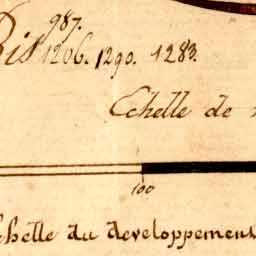 987.
Bis 1206. 1290. 1283.
Echelle de
100
chelle du developpement